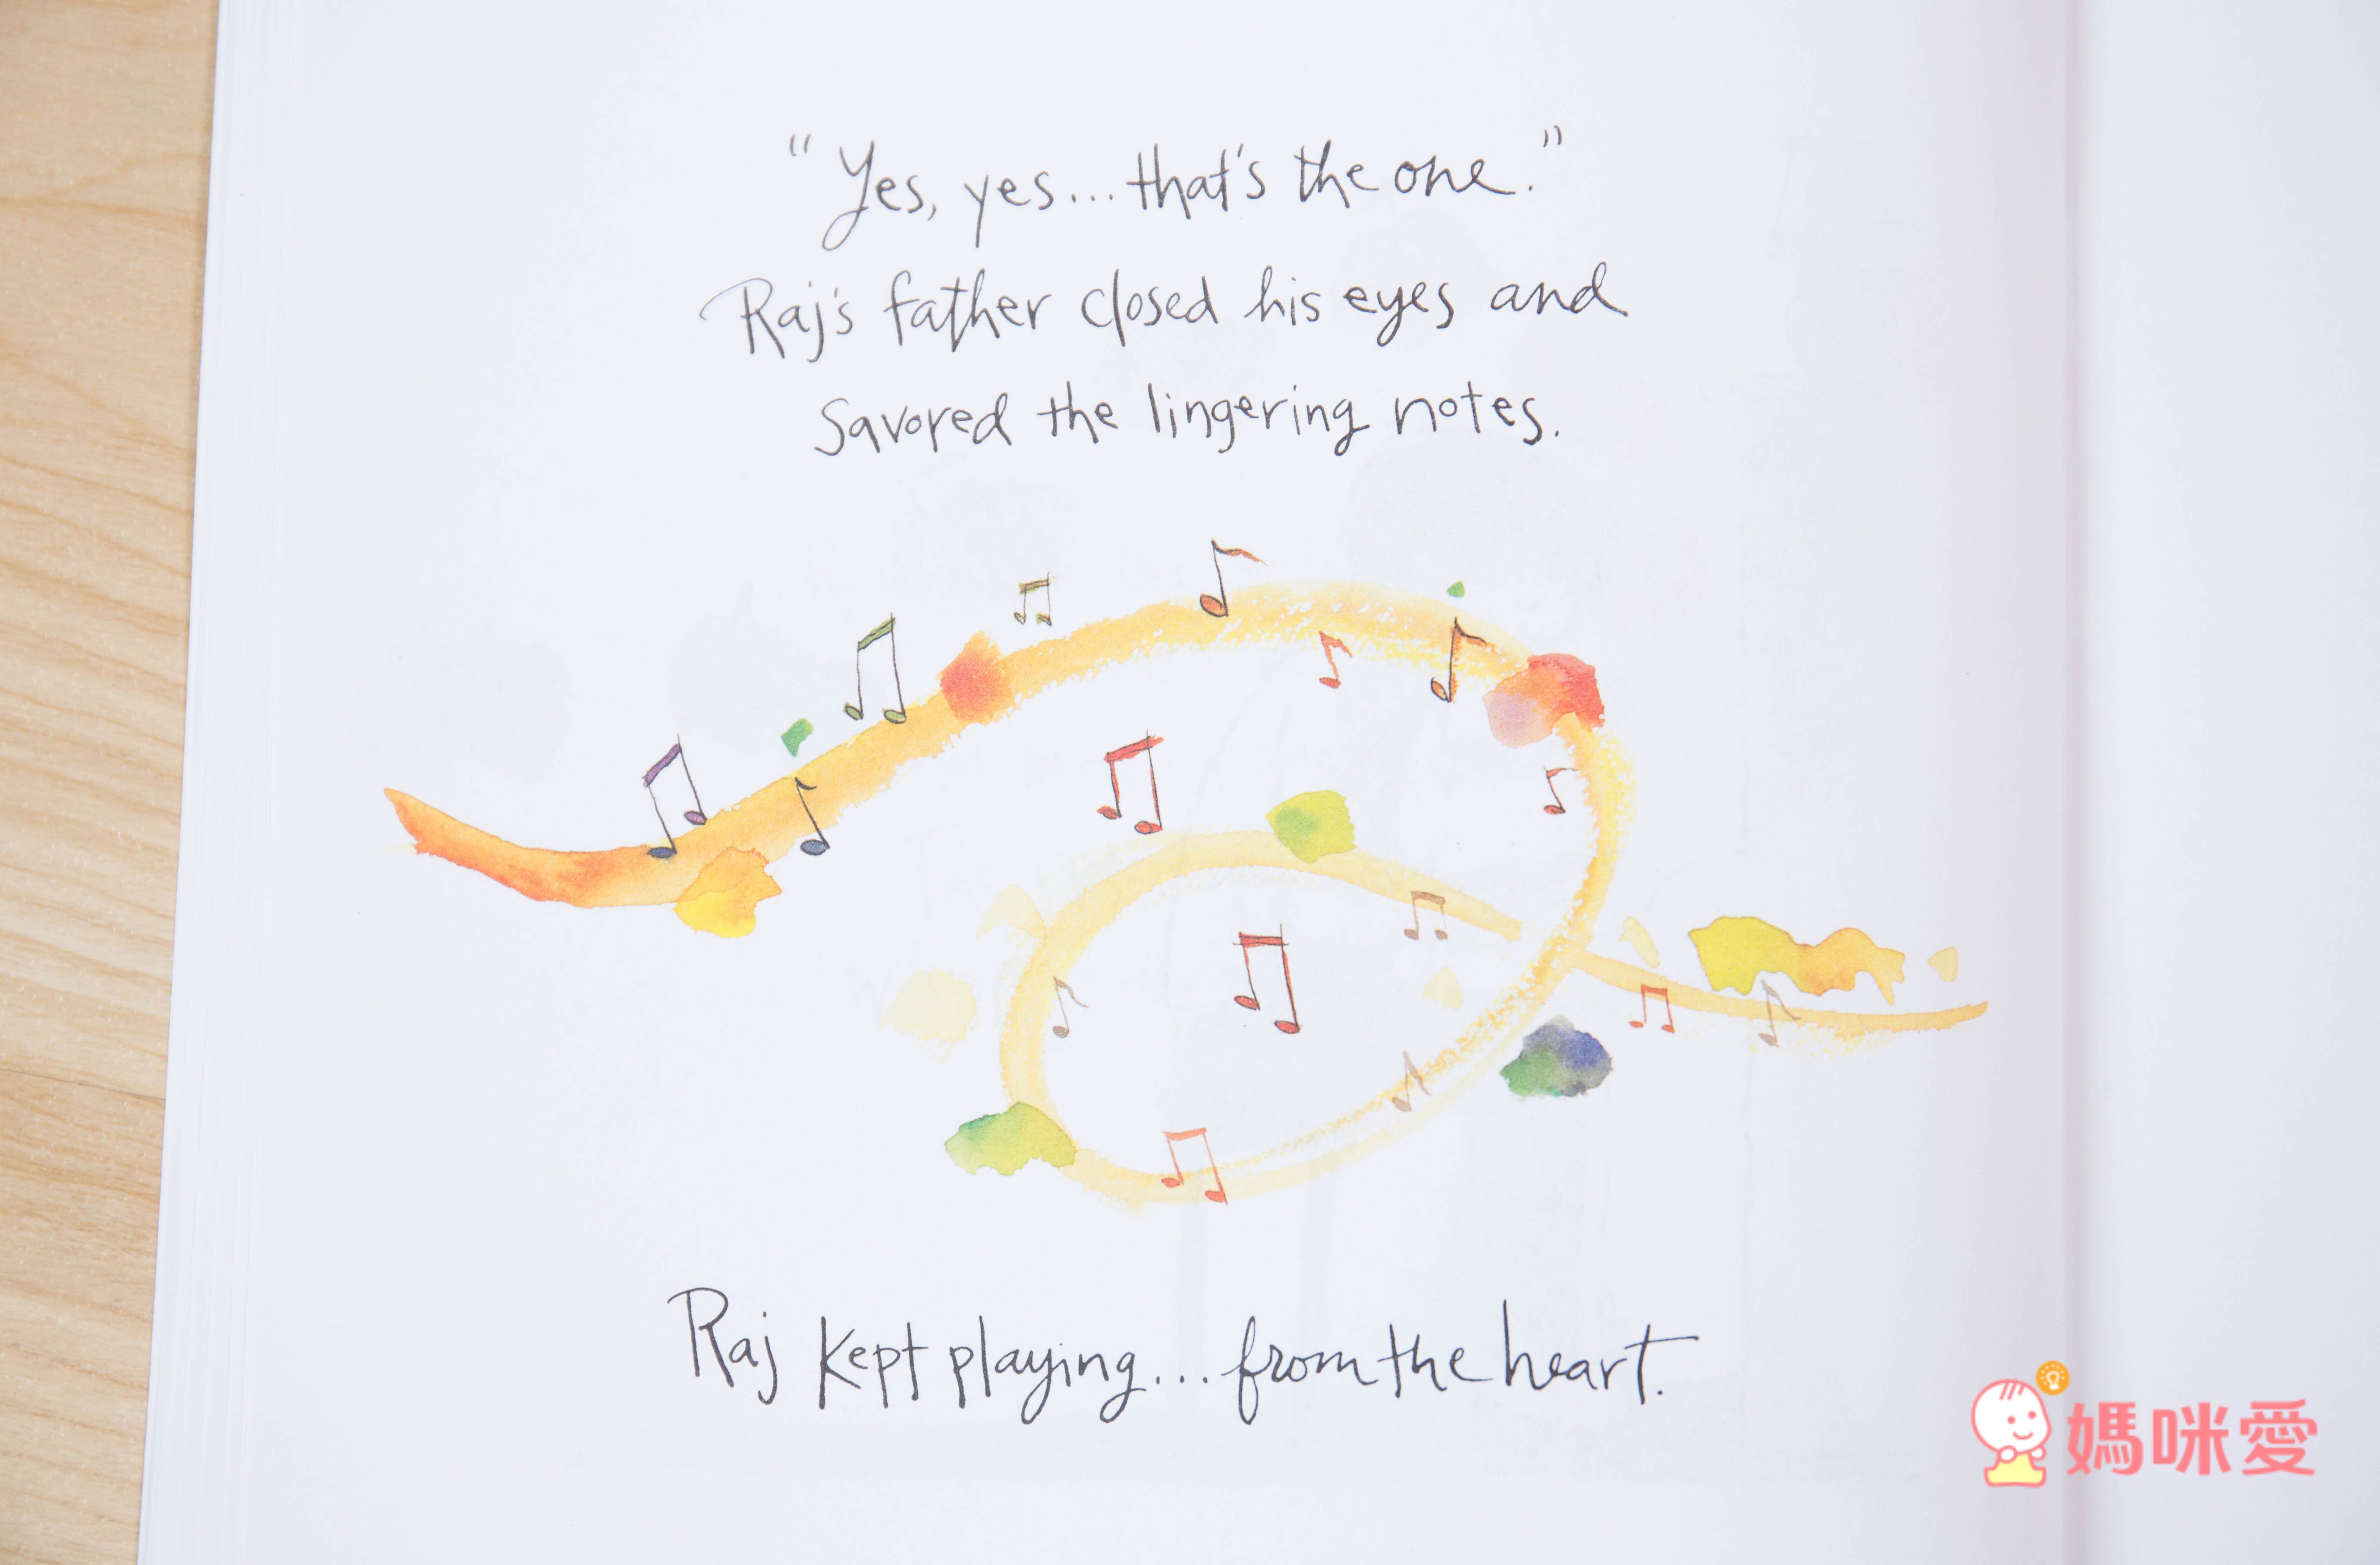 "Yes, yes...that's the one."
Raj's father closed his eyes and
savored the lingering notes.
Raj kept playing...from the heart.
媽咪愛